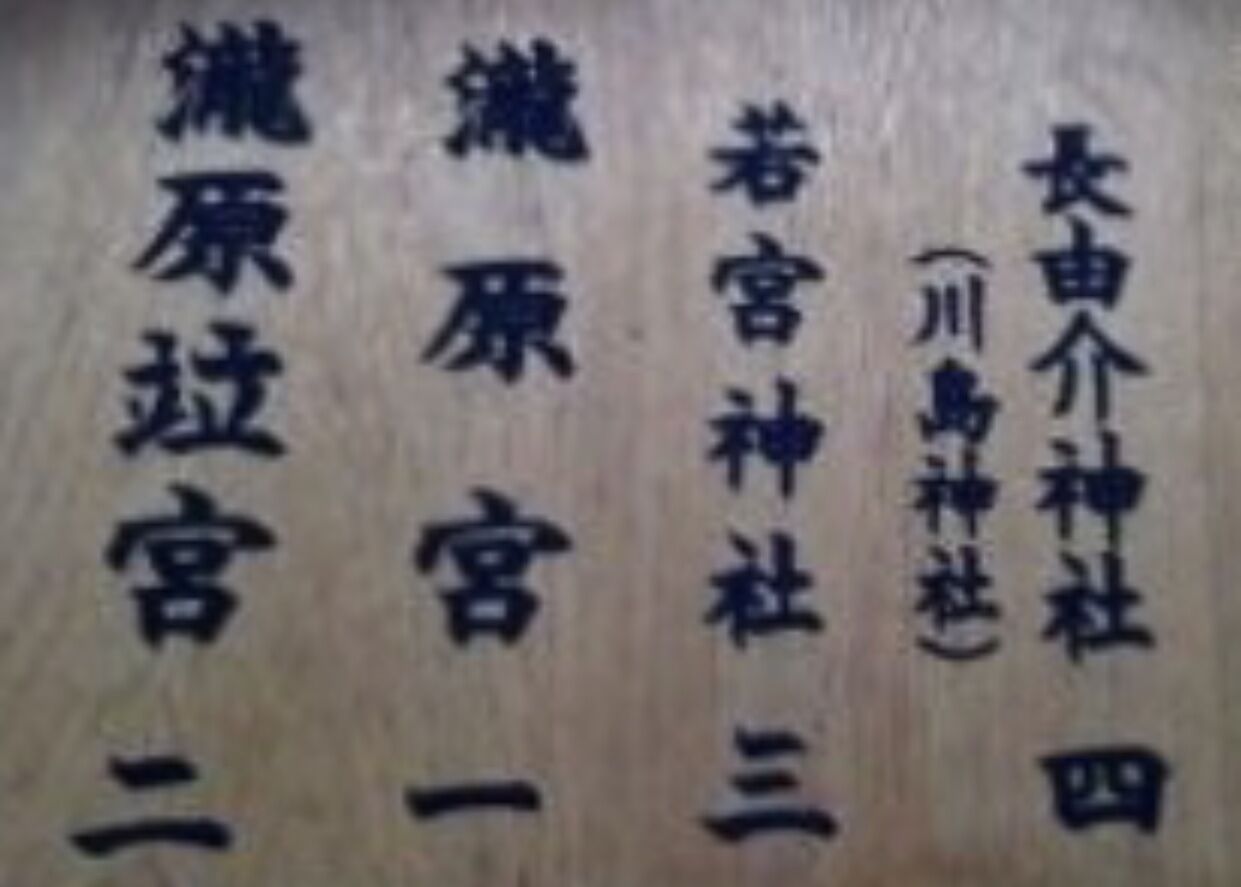 長由介神社 四
(川島神社)
若宮神社 三
瀧原宮 一
瀧原竝宮 二